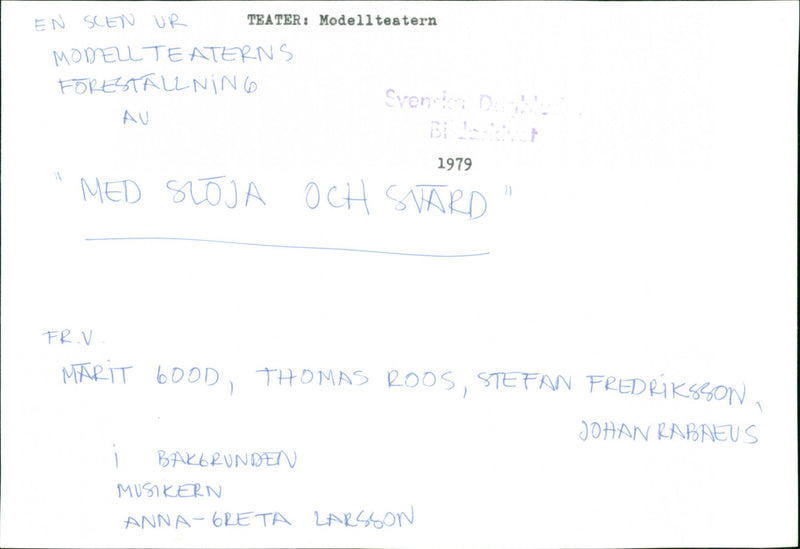 EN SCEN UR
TEATER: Modellteatern
MODELLTEATERNS
FÖRESTÄLLNING
AV
Svenska Dagbladet
Bildarkivet
1979
"MED SLÖJA OCH SVÄRD"
FR.V.
MÄRIT GOOD, THOMAS ROOS, STEFAN FREDRIKSSON,
JOHAN RABAEUS
i BAKGRUNDEN
MUSIKERN
ANNA-GRETA LARSSON